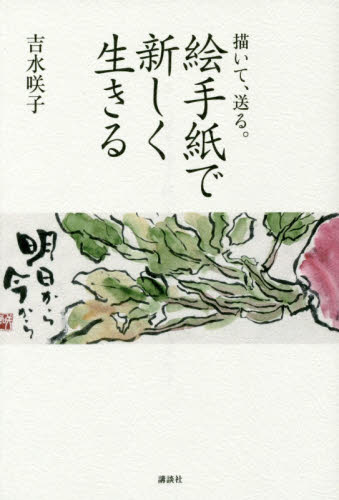 描いて、送る。
絵手紙で
新しく
生きる
吉水咲子
明日から
今から
講談社